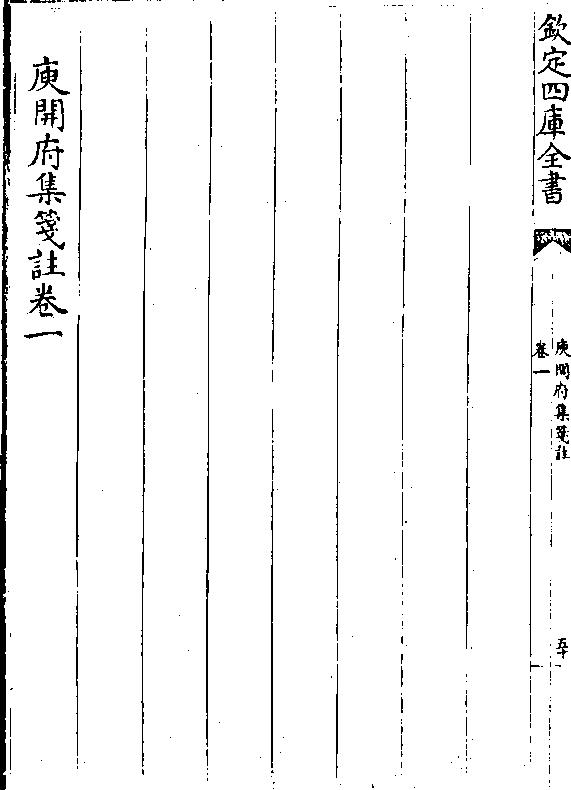 欽定四庫全書
庾開府集箋註
卷一
五十
庾開府集箋註卷一